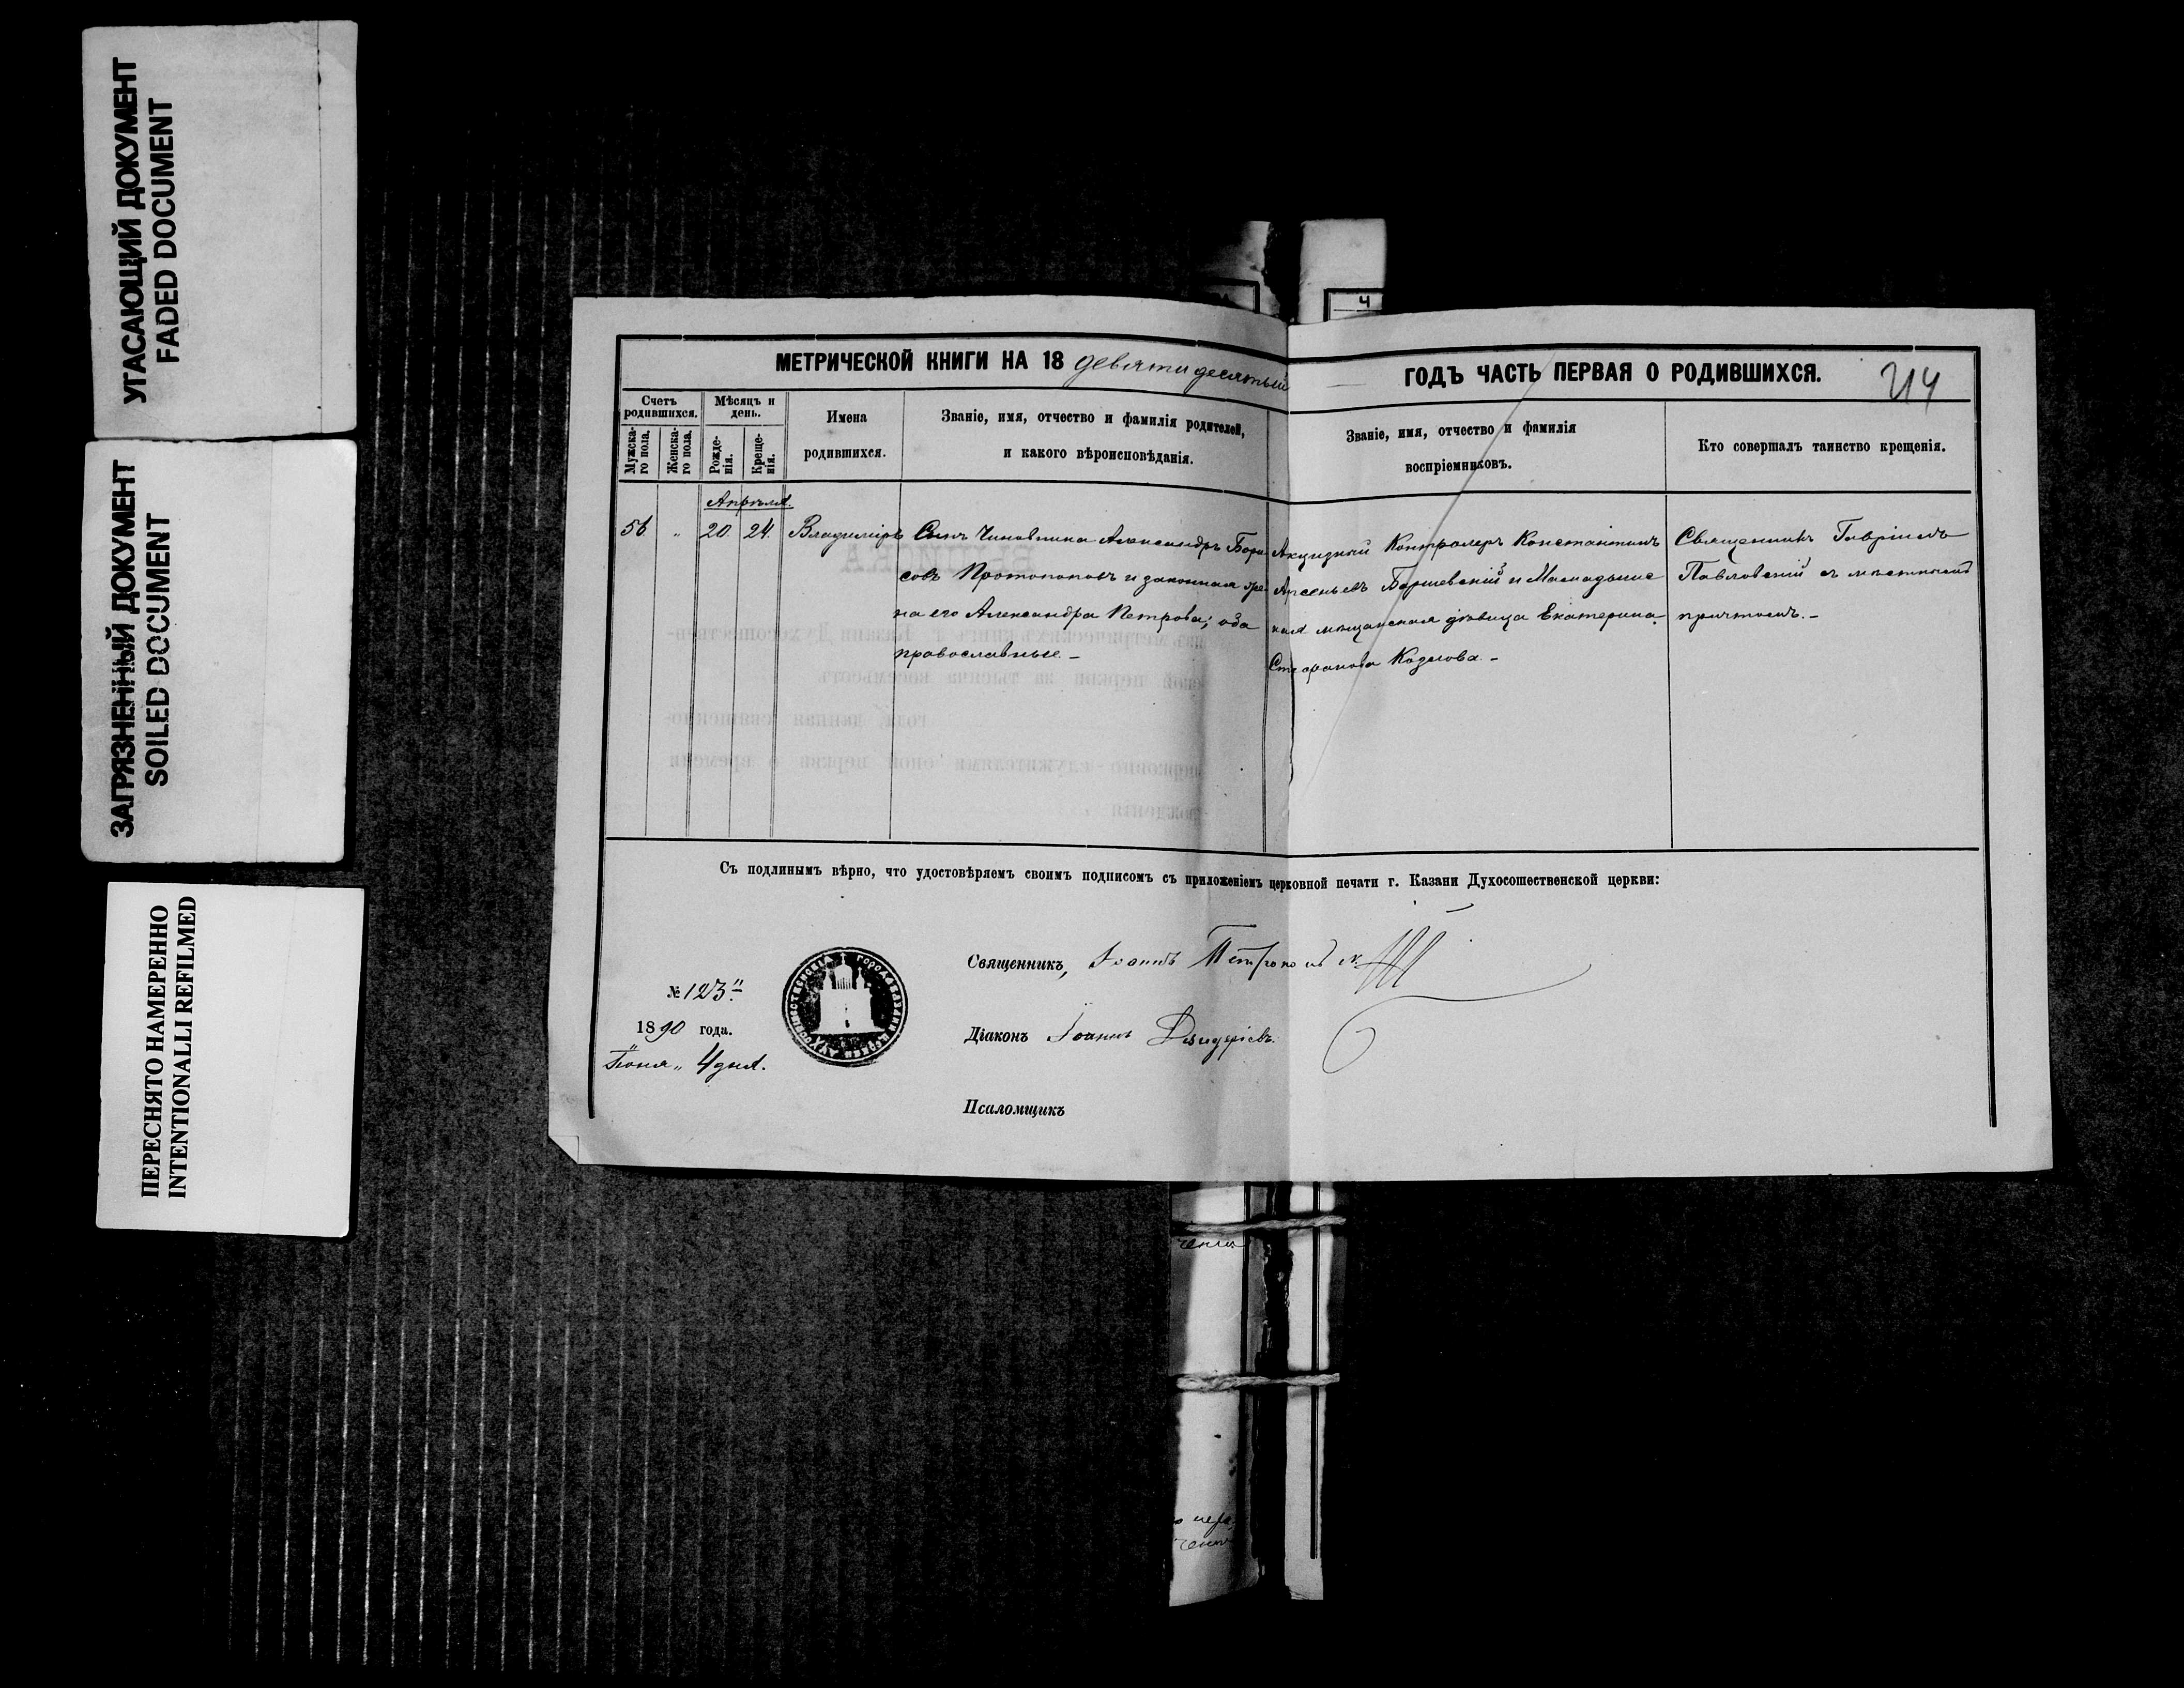 УГАСАЮЩИЙ ДОКУМЕНТ
FADED DOCUMENT
ЗАГРЯЗНЕННЫЙ ДОКУМЕНТ
SOILED DOCUMENT
ПЕРЕСНЯТО НАМЕРЕННО
INTENTIONALLI REFILMED
Ч
МЕТРИЧЕСКОЙ КНИГИ НА 18 девяти десятый ГОДЪ ЧАСТЬ ПЕРВАЯ О РОДИВШИХСЯ.
214
Счетъ родившихся.
Мужска-го пола.
Женска-го пола.
Мѣсяцъ и день.
Рожде-нія.
Креще-нія.
Имена
родившихся.
Званіе, имя, отчество и фамилія родителей,
и какого вѣроисповѣданія.
Званіе, имя, отчество и фамилія
воспріемниковъ.
Кто совершалъ таинство крещенія.
Апрѣля.
56 " 20. 24. Владиміръ
Сынъ Чиновника Александръ Бори-
совъ Протопоповъ и законная же-
на его Александра Петрова; оба
православные. -
Акцизный Контролеръ Константинъ
Арсеньевъ и
мѣщанская дѣвица Екатерина
Стефанова Козлова. -
Священникъ Гавріилъ
Павловскій съ мѣстнымъ
причтомъ. -
Съ подлинымъ вѣрно, что удостовѣряемъ своимъ подписомъ съ приложеніемъ церковной печати г. Казани Духосошественской церкви:
Священникъ, Іоаннъ
№ 123"
1890 года.
Іюня " 4 дня.
Діаконъ Іоаннъ
Псаломщикъ